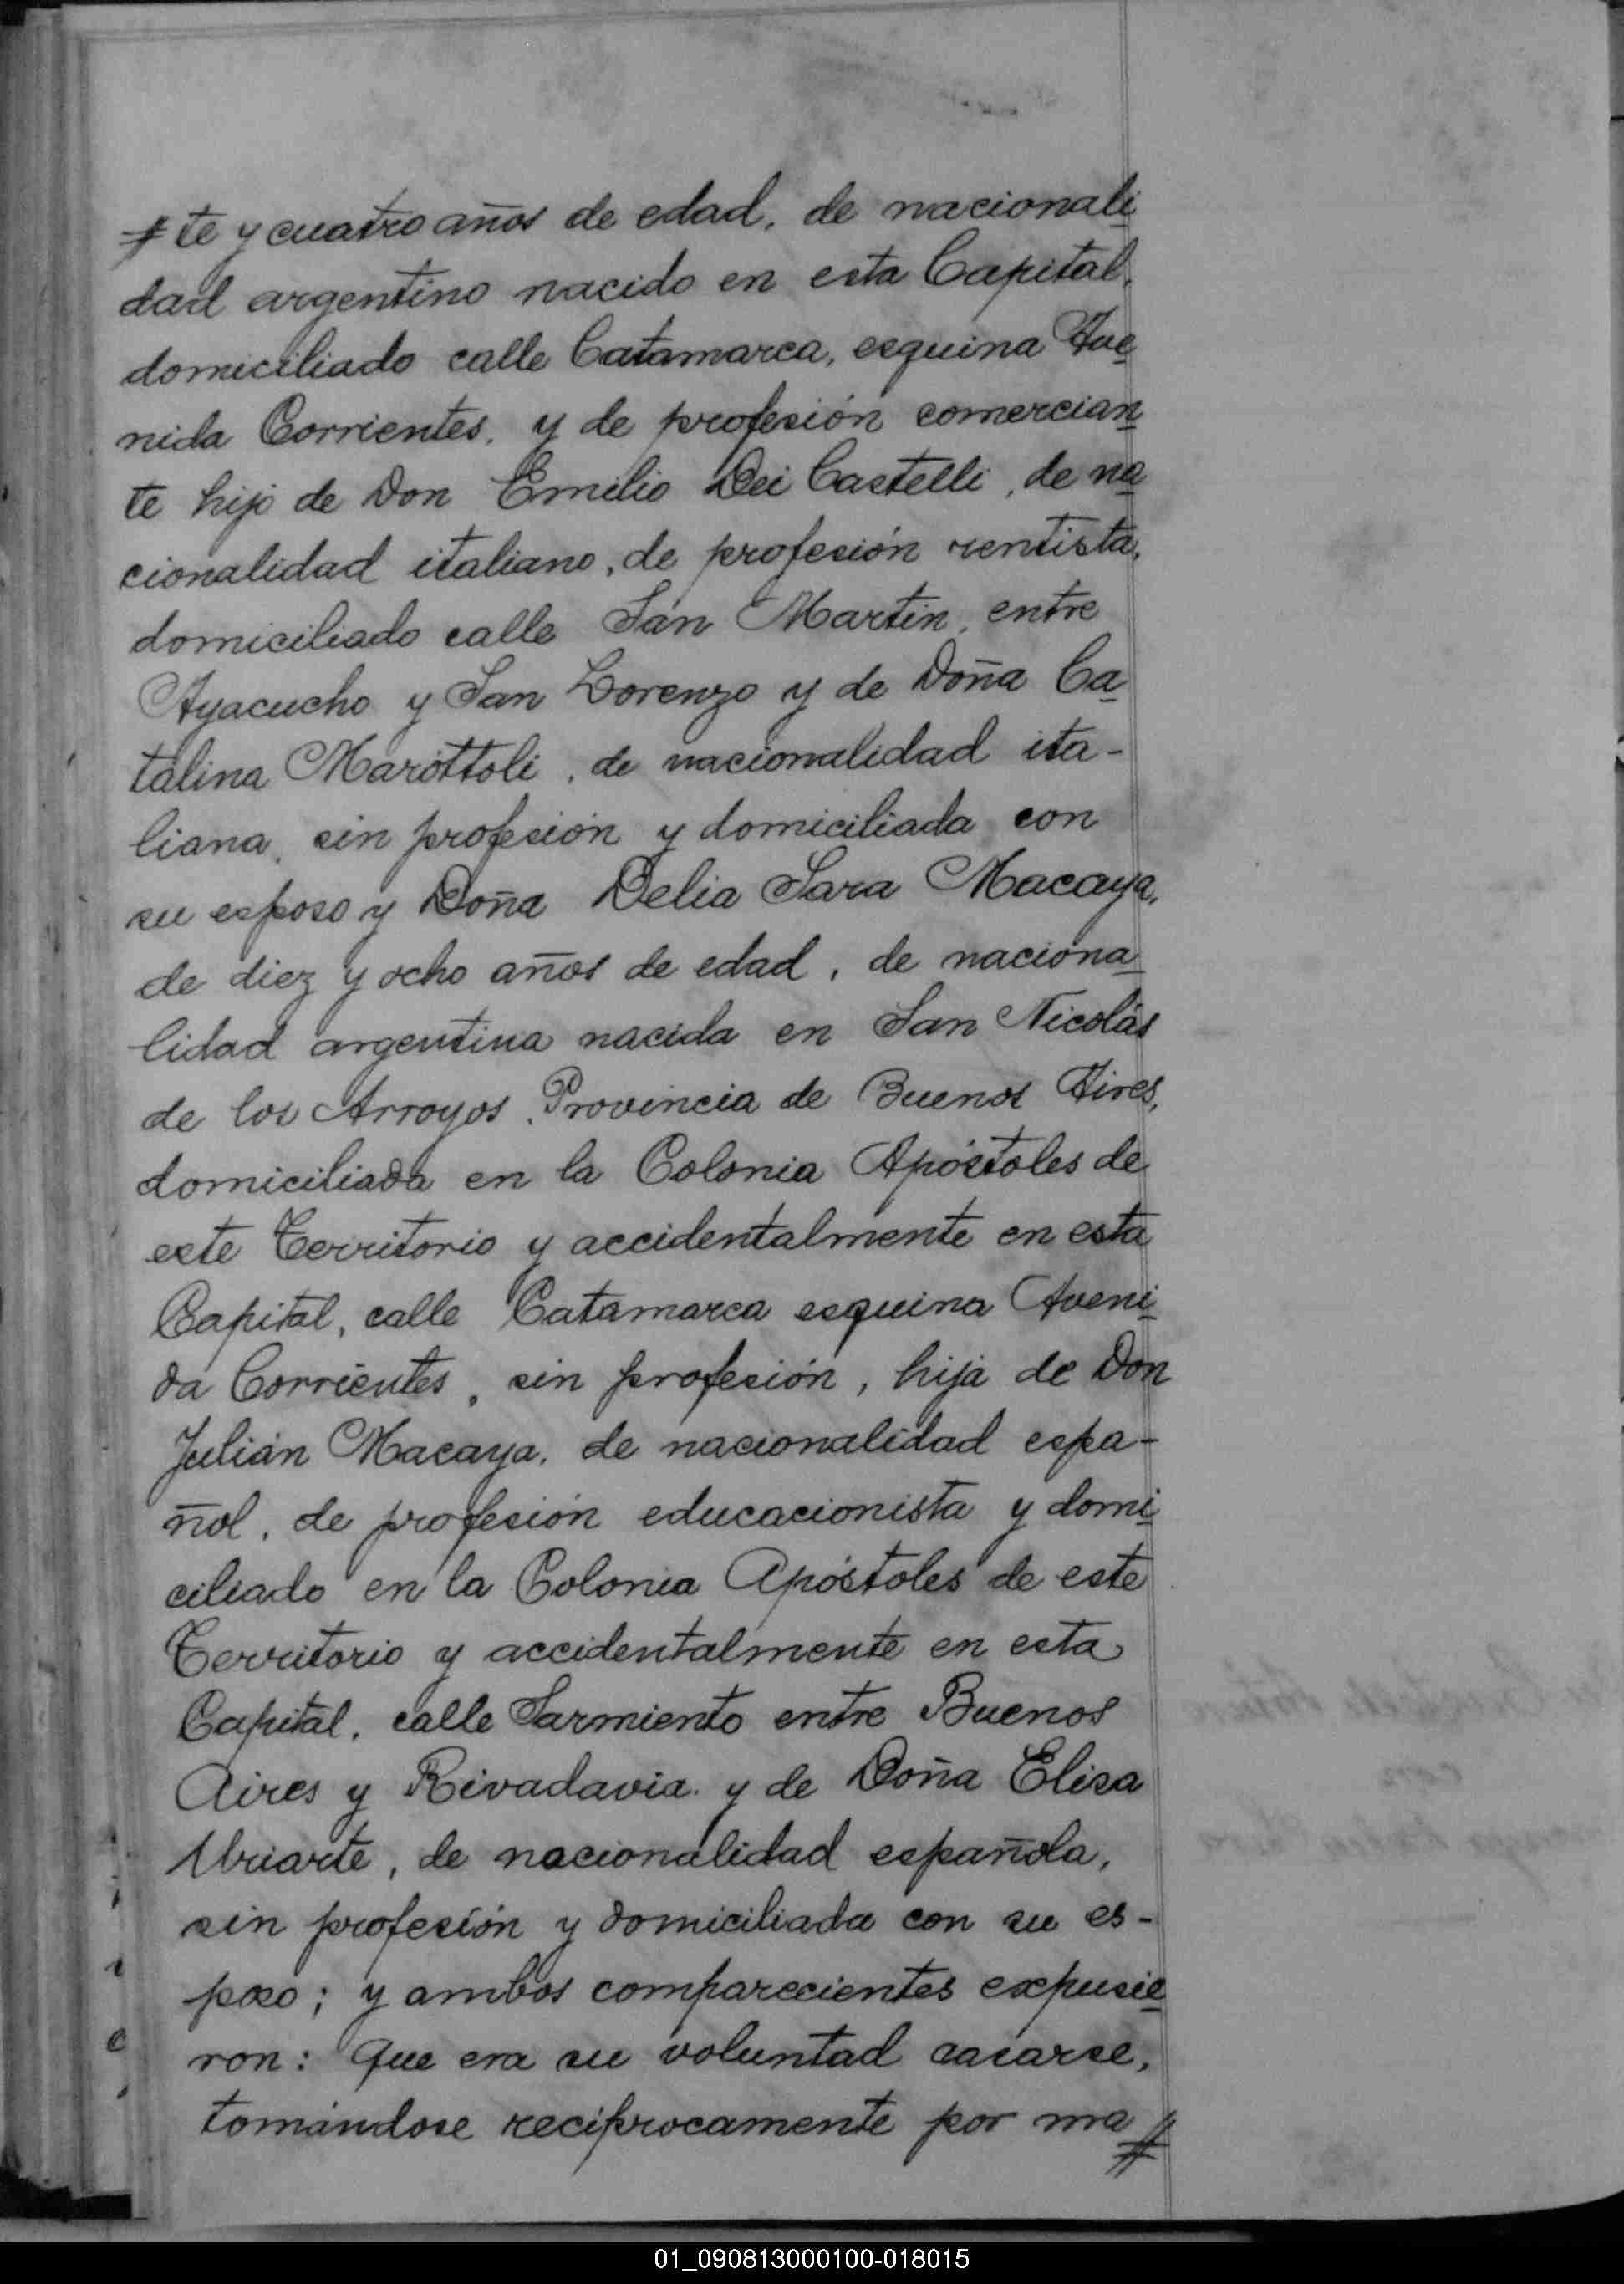 # te y cuatro años de edad, de nacionali
dad argentino nacido en esta Capital,
domiciliado calle Catamarca, esquina Ave
nida Corrientes, y de profesión comercian
te hijo de Don Emilio Dei Castelli, de na
cionalidad italiano, de profesión rentista,
domiciliado calle San Martin, entre
Ayacucho y San Lorenzo y de Doña Ca
talina Marottoli, de nacionalidad ita-
liana, sin profesión y domiciliada con
su esposo y Doña Delia Sara Macaya,
de diez y ocho años de edad, de naciona
lidad argentina nacida en San Nicolás
de los Arroyos, Provincia de Buenos Aires,
domiciliada en la Colonia Apóstoles de
este Territorio y accidentalmente en esta
Capital, calle Catamarca esquina Aveni
da Corrientes, sin profesión, hija de Don
Julián Macaya, de nacionalidad espa-
ñol, de profesión educacionista y domi
ciliado en la Colonia Apóstoles de este
Territorio y accidentalmente en esta
Capital, calle Sarmiento entre Buenos
Aires y Rivadavia y de Doña Elisa
Uriarte, de nacionalidad española,
sin profesión y domiciliada con su es-
poso; y ambos comparecientes expusie
ron: Que era su voluntad casarse,
tomándose recíprocamente por ma #
01_090813000100-018015